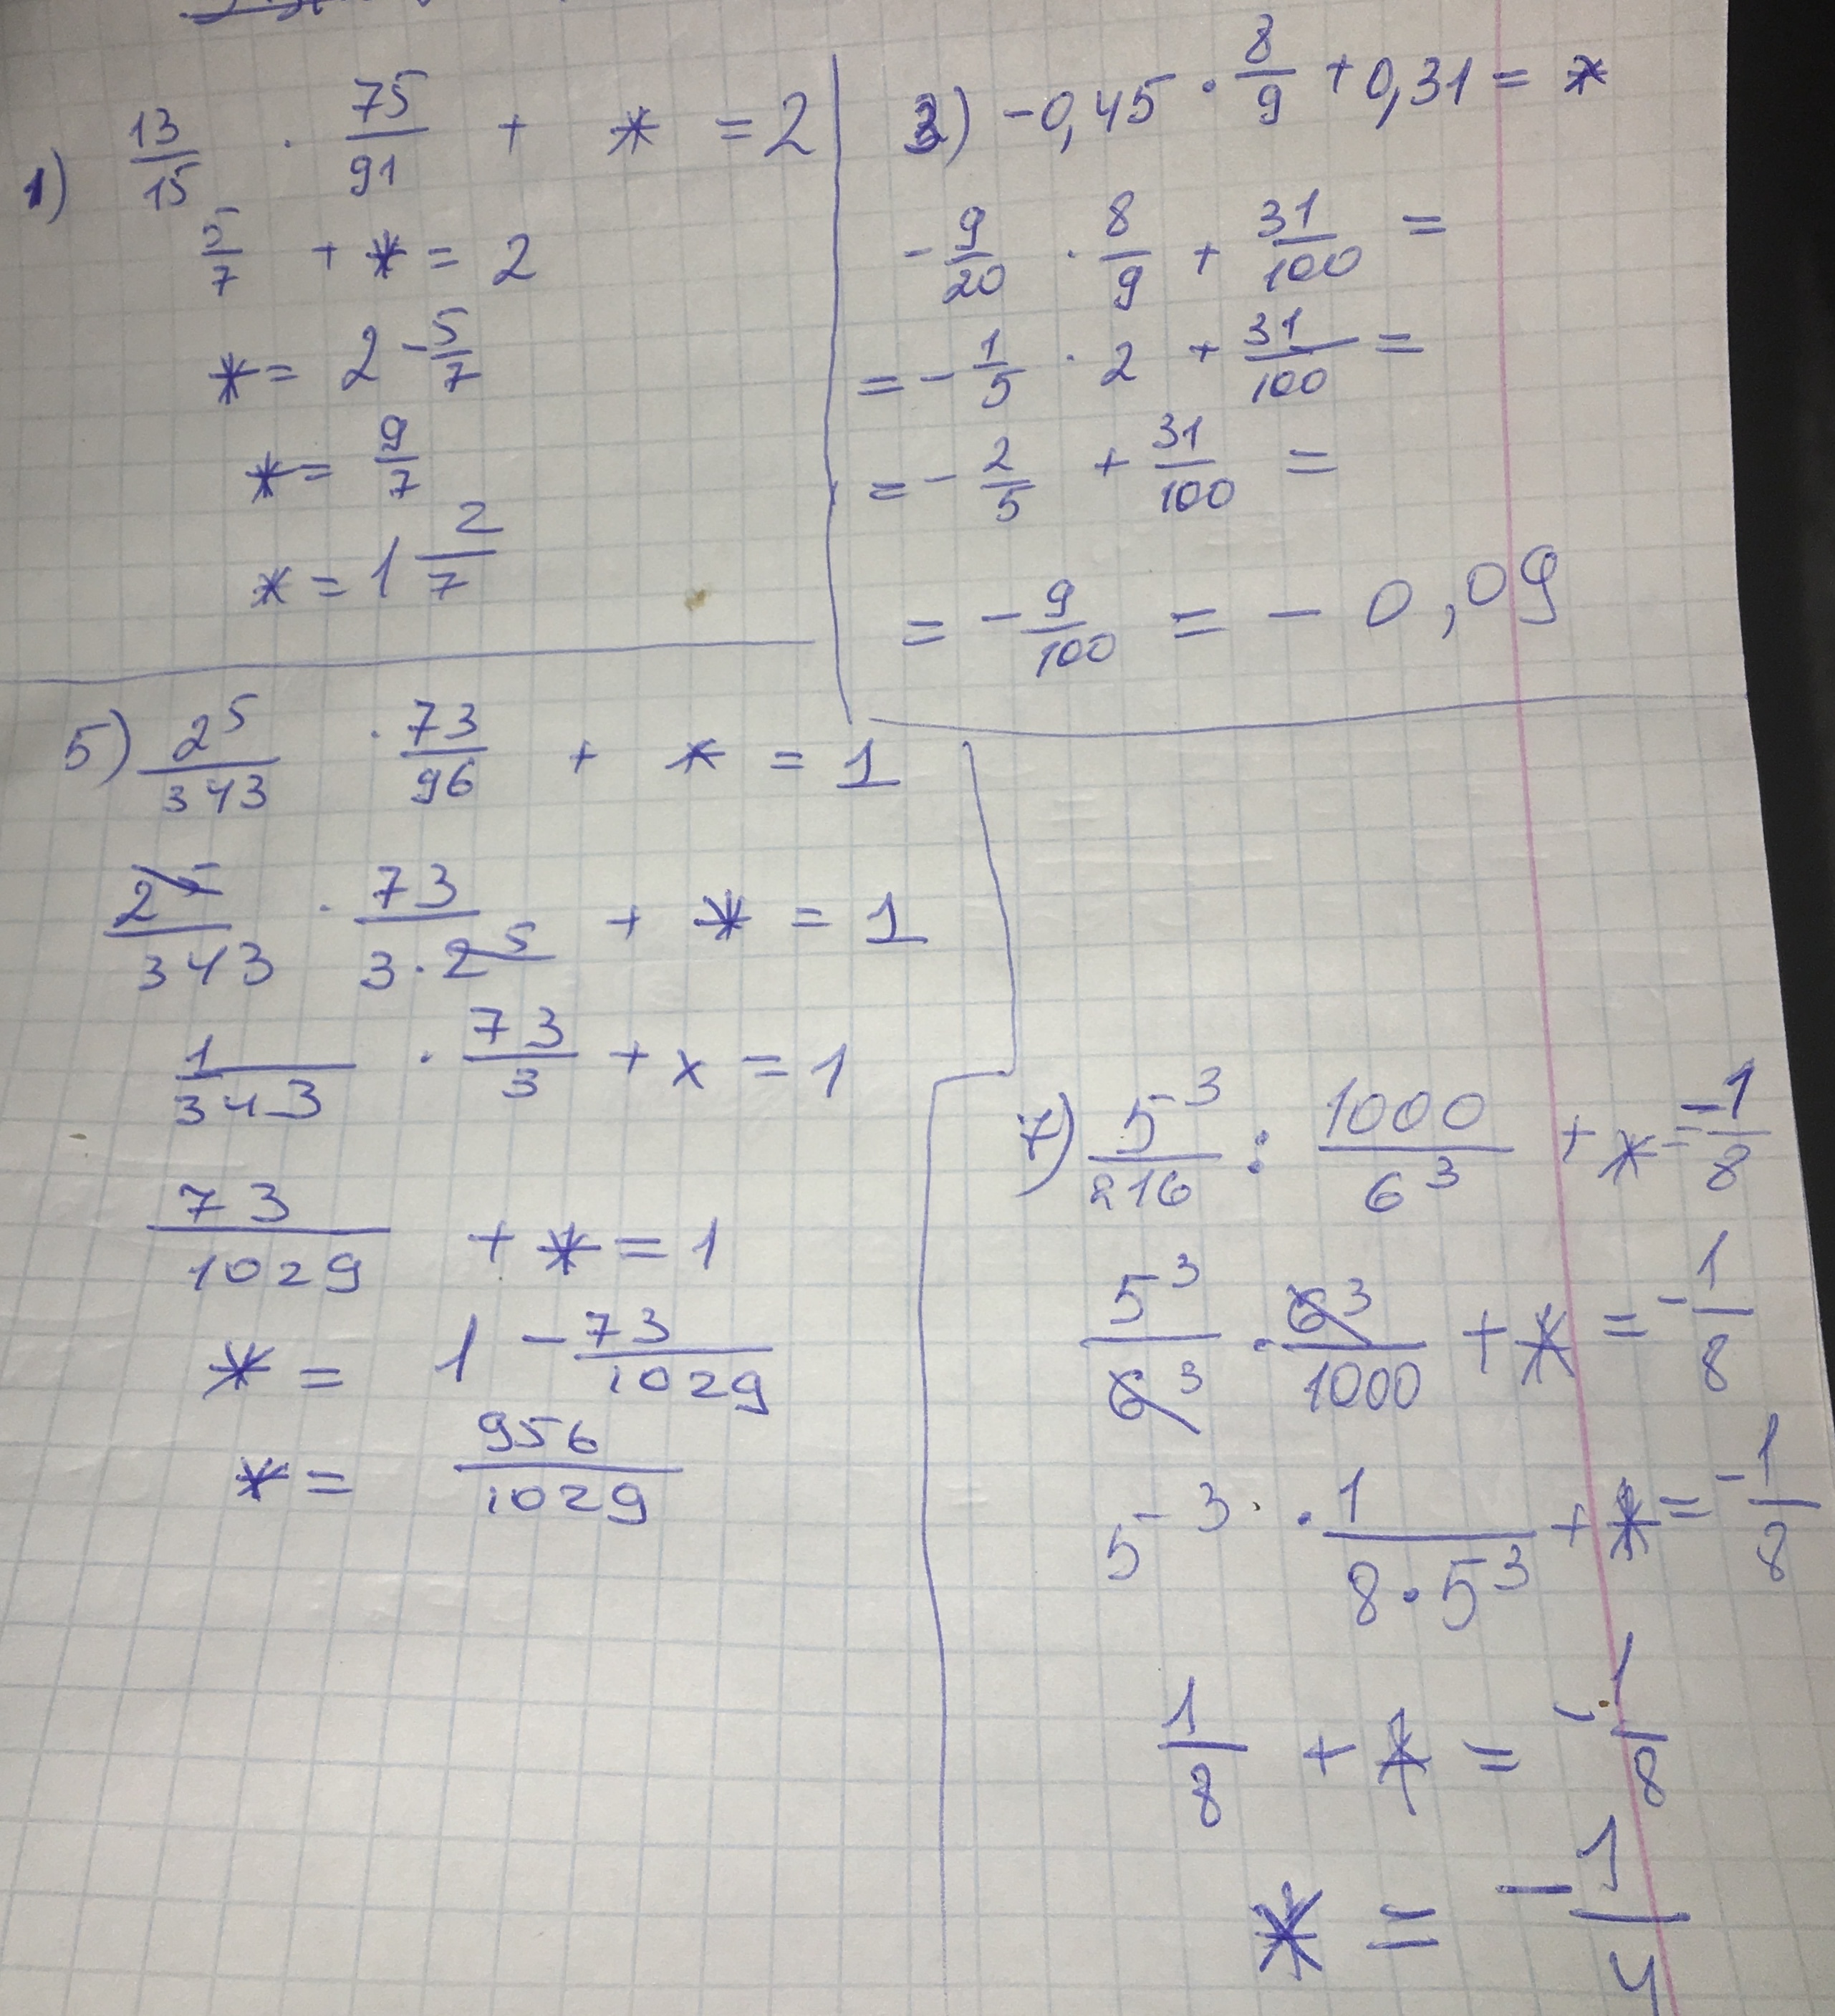 1) 13/15 · 75/91 + * = 2
5/7 + * = 2
* = 2 - 5/7
* = 9/7
* = 1 2/7
3) -0,45 · 8/9 + 0,31 = *
-9/20 · 8/9 + 31/100 =
= -1/5 · 2 + 31/100 =
= -2/5 + 31/100 =
= -9/100 = -0,09
5) 2^5/343 · 73/96 + * = 1
2^5/343 · 73/(3·2^5) + * = 1
1/343 · 73/3 + x = 1
73/1029 + * = 1
* = 1 - 73/1029
* = 956/1029
7) 5^3/216 : 1000/6^3 + * = -1/8
5^3/6^3 · 6^3/1000 + * = -1/8
5^-3 · 1/(8·5^3) + * = -1/8
1/8 + * = -1/8
* = -1/4